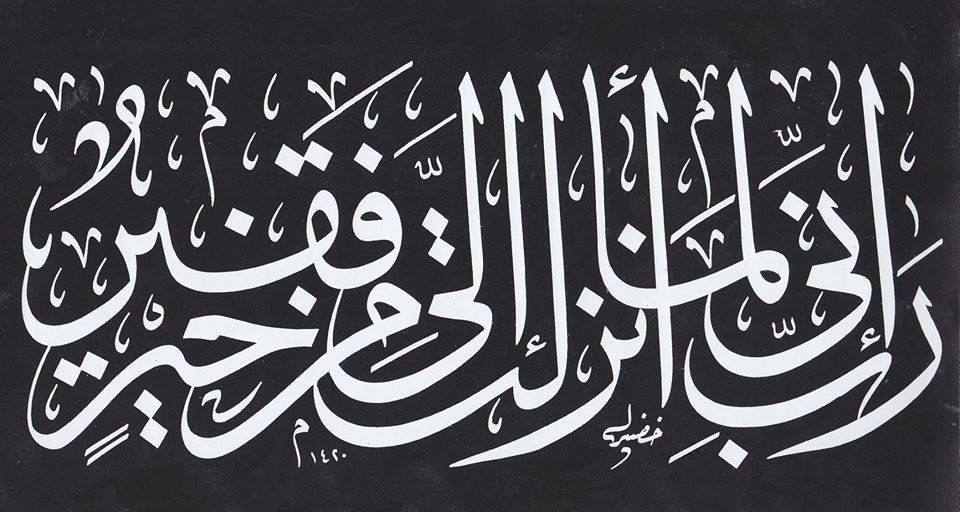 رَبِّ إِنِّي لِمَا أَنزَلْتَ إِلَيَّ مِنْ خَيْرٍ فَقِيرٌ
خضير
١٤٢٠